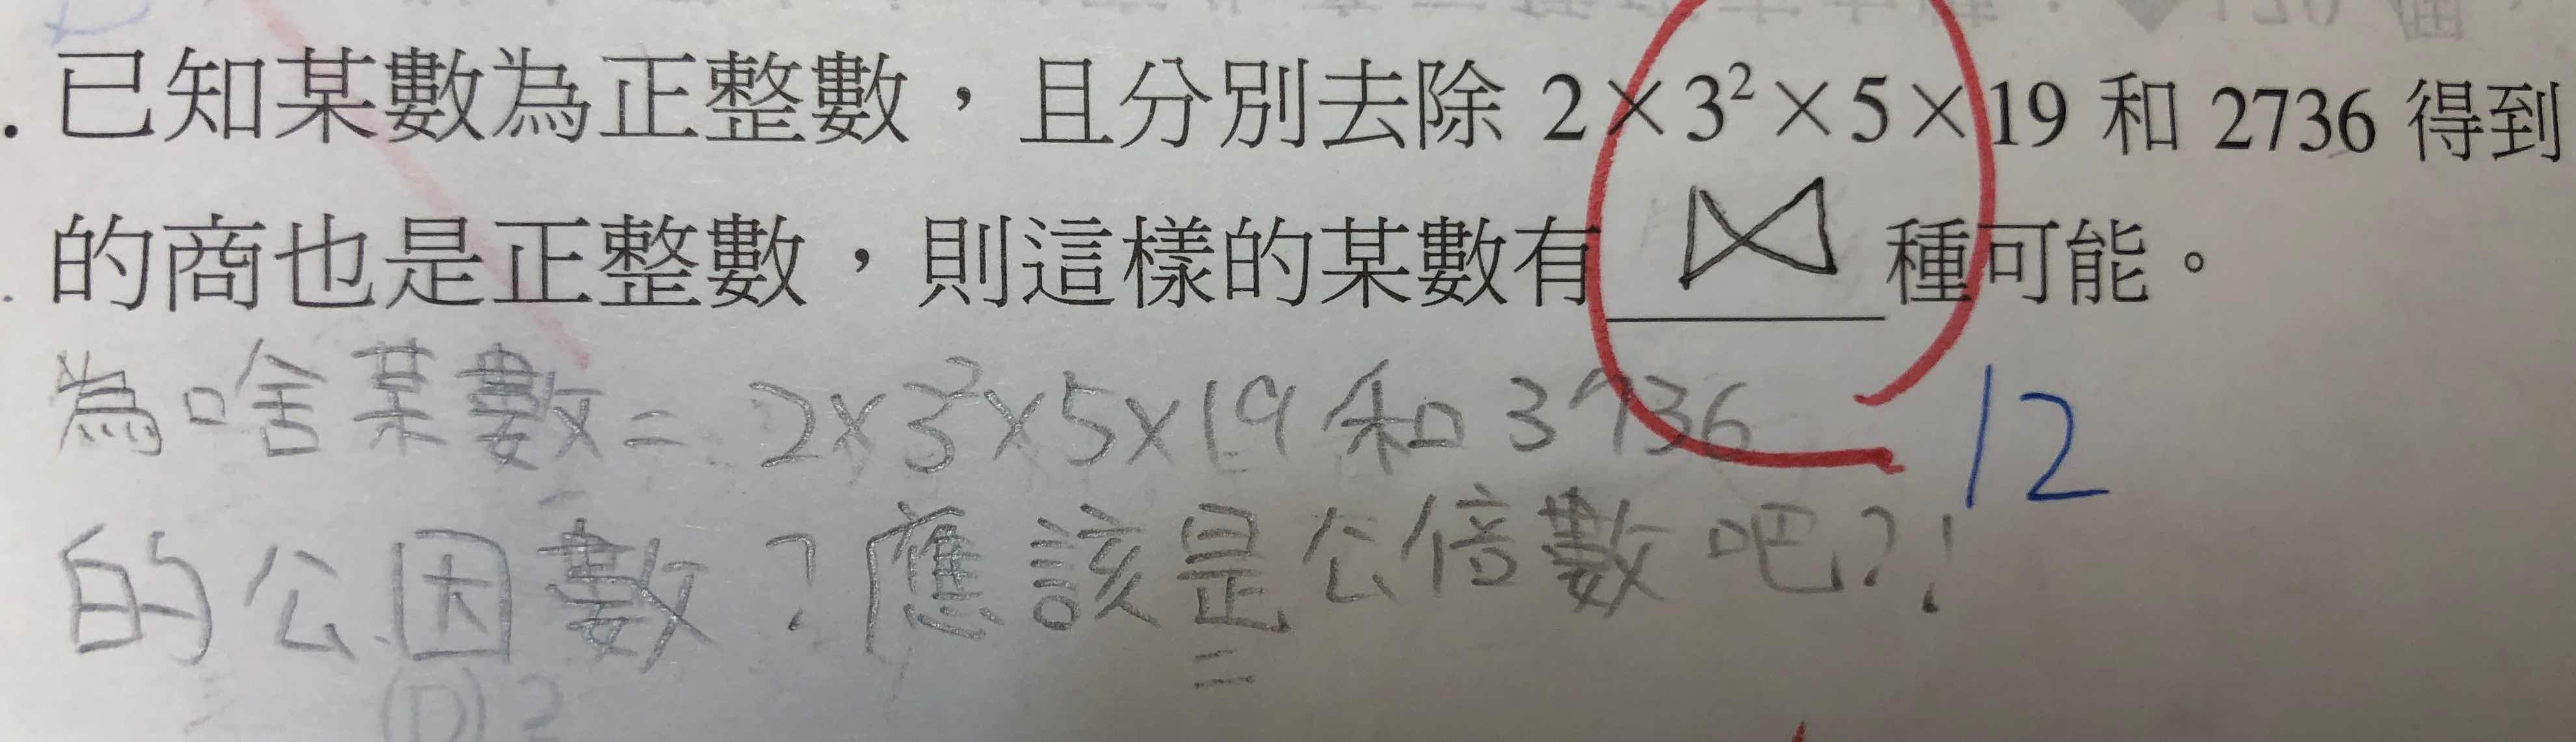 已知某數為正整數，且分別去除 2×3²×5×19 和 2736 得到
的商也是正整數，則這樣的某數有 種可能。
為啥某數= 2×3²×5×19 和 3736
12
的公因數？應該是公倍數吧？！
(D) 2